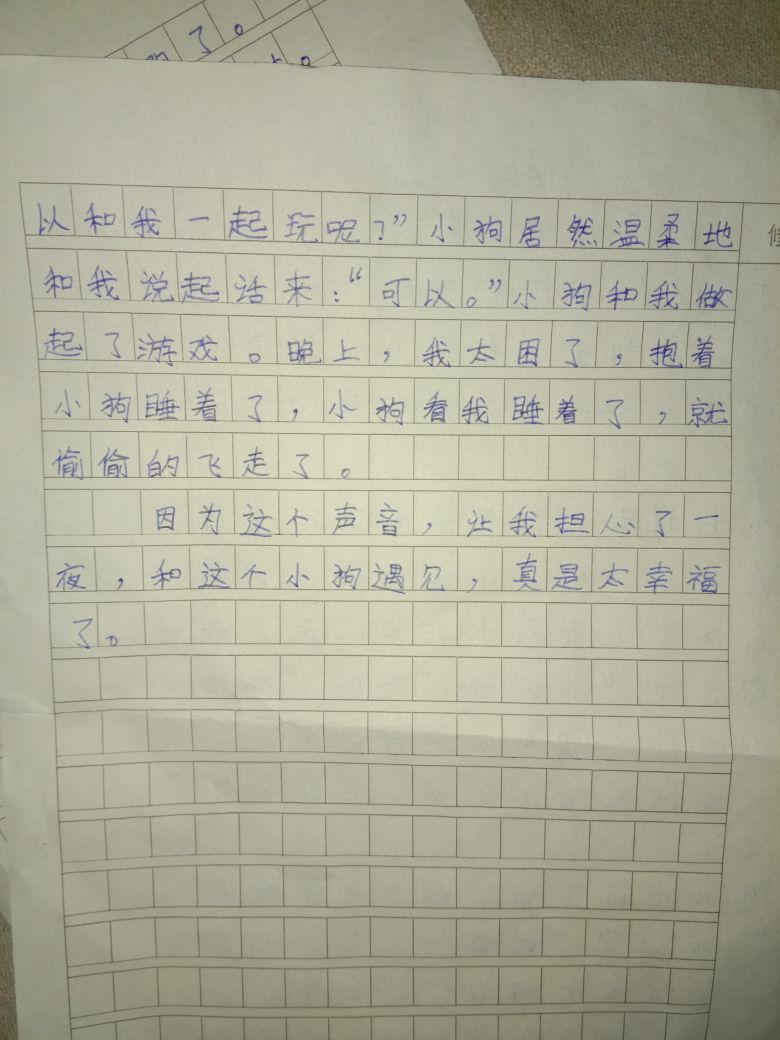 了。
以和我一起玩呢？”小狗居然温柔地
和我说起话来：“可以。”小狗和我做
起了游戏。晚上，我太困了，抱着
小狗睡着了，小狗看我睡着了，就
偷偷的飞走了。
因为这个声音，让我担心了一
夜，和这个小狗遇见，真是太幸福
了。